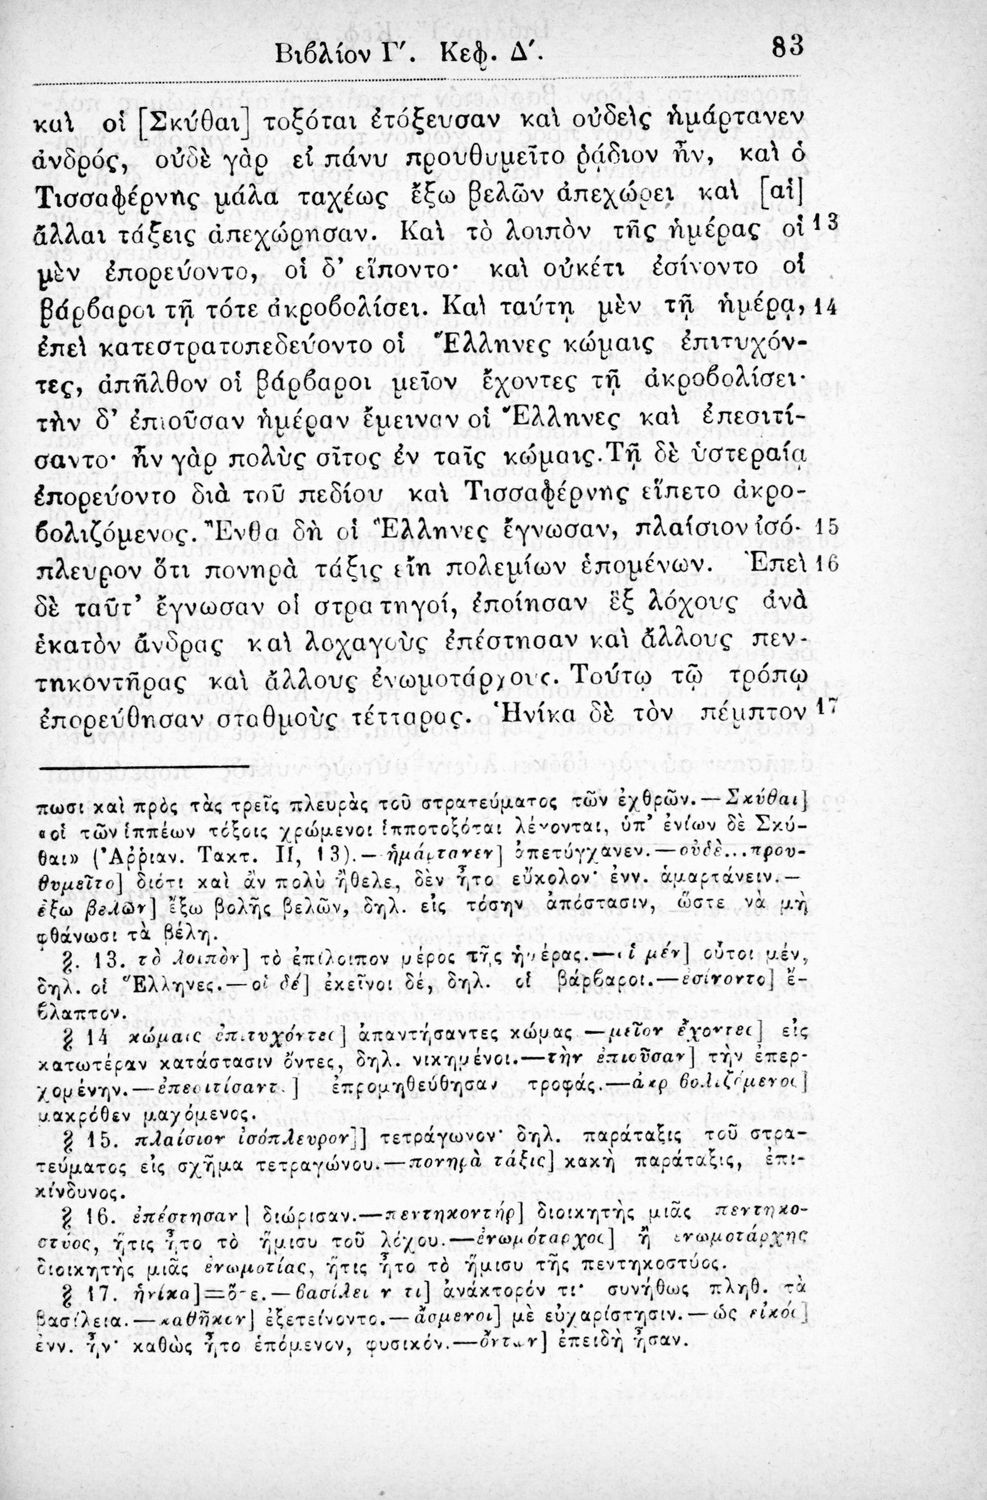 Βιβλίον Γʹ. Κεφ. Δʹ. 83
καὶ οἱ [Σκύθαι] τοξόται ἐτόξευσαν καὶ οὐδεὶς ἡμάρτανεν
ἀνδρός, οὐδὲ γὰρ εἰ πάνυ προυθυμεῖτο ῥᾴδιον ἦν, καὶ ὁ
Τισσαφέρνης μάλα ταχέως ἔξω βελῶν ἀπεχώρει καὶ [αἱ]
ἄλλαι τάξεις ἀπεχώρησαν. Καὶ τὸ λοιπὸν τῆς ἡμέρας οἱ 13
μὲν ἐπορεύοντο, οἱ δ’ εἵποντο· καὶ οὐκέτι ἐσίνοντο οἱ
βάρβαροι τῇ τότε ἀκροβολίσει. Καὶ ταύτῃ μὲν τῇ ἡμέρᾳ, 14
ἐπεὶ κατεστρατοπεδεύοντο οἱ Ἕλληνες κώμαις ἐπιτυχόν-
τες, ἀπῆλθον οἱ βάρβαροι μεῖον ἔχοντες τῇ ἀκροβολίσει·
τὴν δ’ ἐπιοῦσαν ἡμέραν ἔμειναν οἱ Ἕλληνες καὶ ἐπεσιτί-
σαντο· ἦν γὰρ πολὺς σῖτος ἐν ταῖς κώμαις. Τῇ δὲ ὑστεραίᾳ
ἐπορεύοντο διὰ τοῦ πεδίου καὶ Τισσαφέρνης εἵπετο ἀκρο-
βολιζόμενος. Ἔνθα δὴ οἱ Ἕλληνες ἔγνωσαν, πλαίσιον ἰσό- 15
πλευρον ὅτι πονηρὰ τάξις εἴη πολεμίων ἑπομένων. Ἐπεὶ 16
δὲ ταῦτ’ ἔγνωσαν οἱ στρατηγοί, ἐποίησαν ἓξ λόχους ἀνὰ
ἑκατὸν ἄνδρας καὶ λοχαγοὺς ἐπέστησαν καὶ ἄλλους πεν-
τηκοντῆρας καὶ ἄλλους ἐνωμοτάρχους. Τούτῳ τῷ τρόπῳ
ἐπορεύθησαν σταθμοὺς τέτταρας. Ἡνίκα δὲ τὸν πέμπτον 17
πωσι καὶ πρὸς τὰς τρεῖς πλευρὰς τοῦ στρατεύματος τῶν ἐχθρῶν.—Σκύθαι]
«οἱ τῶν ἱππέων τόξοις χρώμενοι ἱπποτοξόται λέγονται, ὑπ’ ἐνίων δὲ Σκύ-
θαι» (Ἀρριαν. Τακτ. II, 13).—ἡμάρτανεν] ἀπετύγχανεν.—οὐδὲ...πρου-
θυμεῖτο] διότι καὶ ἂν πολὺ ἤθελε, δὲν ἦτο εὔκολον· ἐνν. ἁμαρτάνειν.—
ἔξω βελῶν] ἔξω βολῆς βελῶν, δηλ. εἰς τόσην ἀπόστασιν, ὥστε νὰ μὴ
φθάνωσι τὰ βέλη.
§. 13. τὸ λοιπὸν] τὸ ἐπίλοιπον μέρος τῆς ἡμέρας.—οἱ μέν] οὗτοι μέν,
δηλ. οἱ Ἕλληνες.—οἱ δέ] ἐκεῖνοι δέ, δηλ. οἱ βάρβαροι.—ἐσίνοντο] ἔ-
βλαπτον.
§ 14 κώμαις ἐπιτυχόντες] ἀπαντήσαντες κώμας —μεῖον ἔχοντες] εἰς
κατωτέραν κατάστασιν ὄντες, δηλ. νικημένοι.—τὴν ἐπιοῦσαν] τὴν ἐπερ-
χομένην.—ἐπεσιτίσαντο] ἐπρομηθεύθησαν τροφάς.—ἀκροβολιζόμενος]
μακρόθεν μαχόμενος.
§ 15. πλαίσιον ἰσόπλευρον]] τετράγωνον· δηλ. παράταξις τοῦ στρα-
τεύματος εἰς σχῆμα τετραγώνου.—πονηρὰ τάξις] κακὴ παράταξις, ἐπι-
κίνδυνος.
§ 16. ἐπέστησαν] διώρισαν.—πεντηκοντήρ] διοικητὴς μιᾶς πεντηκο-
στύος, ἥτις ἦτο τὸ ἥμισυ τοῦ λόχου.—ἐνωμόταρχος] ἢ ἐνωμοτάρχης
διοικητὴς μιᾶς ἐνωμοτίας, ἥτις ἦτο τὸ ἥμισυ τῆς πεντηκοστύος.
§ 17. ἡνίκα]=ὅτε.—βασίλειόν τι] ἀνάκτορόν τι· συνήθως πληθ. τὰ
βασίλεια.—καθῆκον] ἐξετείνοντο.—ἄσμενοι] μὲ εὐχαρίστησιν.—ὡς εἰκός]
ἐνν. ἦν· καθὼς ἦτο ἑπόμενον, φυσικόν.—ὄντων] ἐπειδὴ ἦσαν.